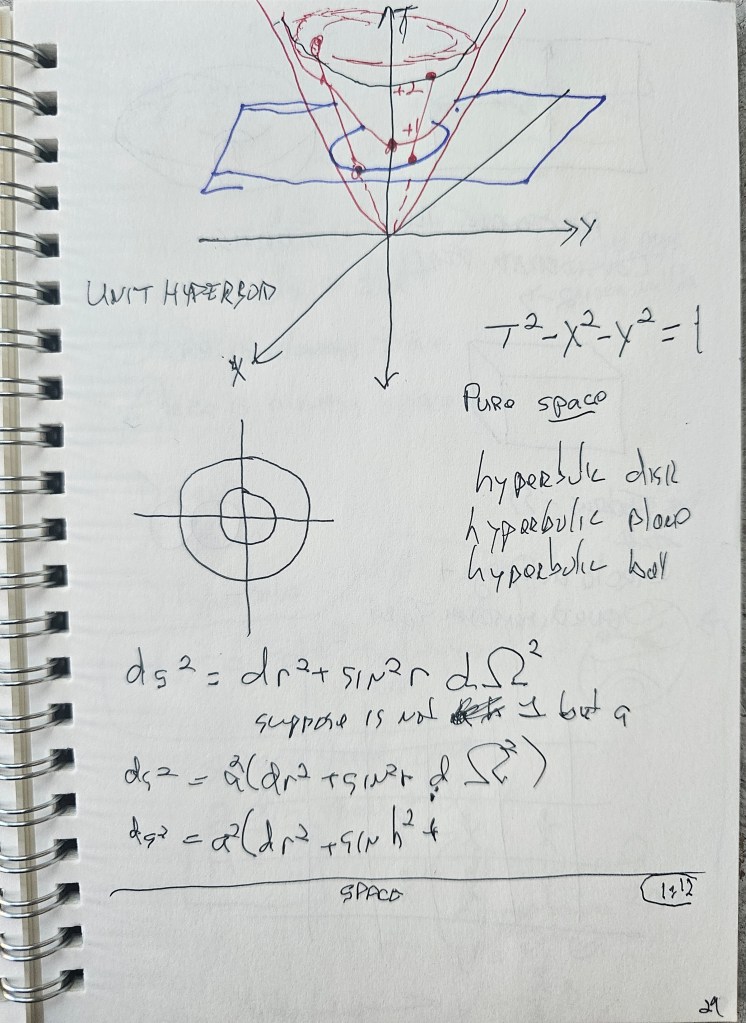 T
+2
+1
Y
UNIT HYPERBOD
X
T² - X² - Y² = 1
Pure space
hyperbolic disk
hyperbolic plane
hyperbolic ball
ds² = dr² + sin²r dΩ²
suppose is not 1 but a
ds² = a²(dr² + sin²r dΩ²)
ds² = a²(dr² + sin h² +
SPACE
1:12
29